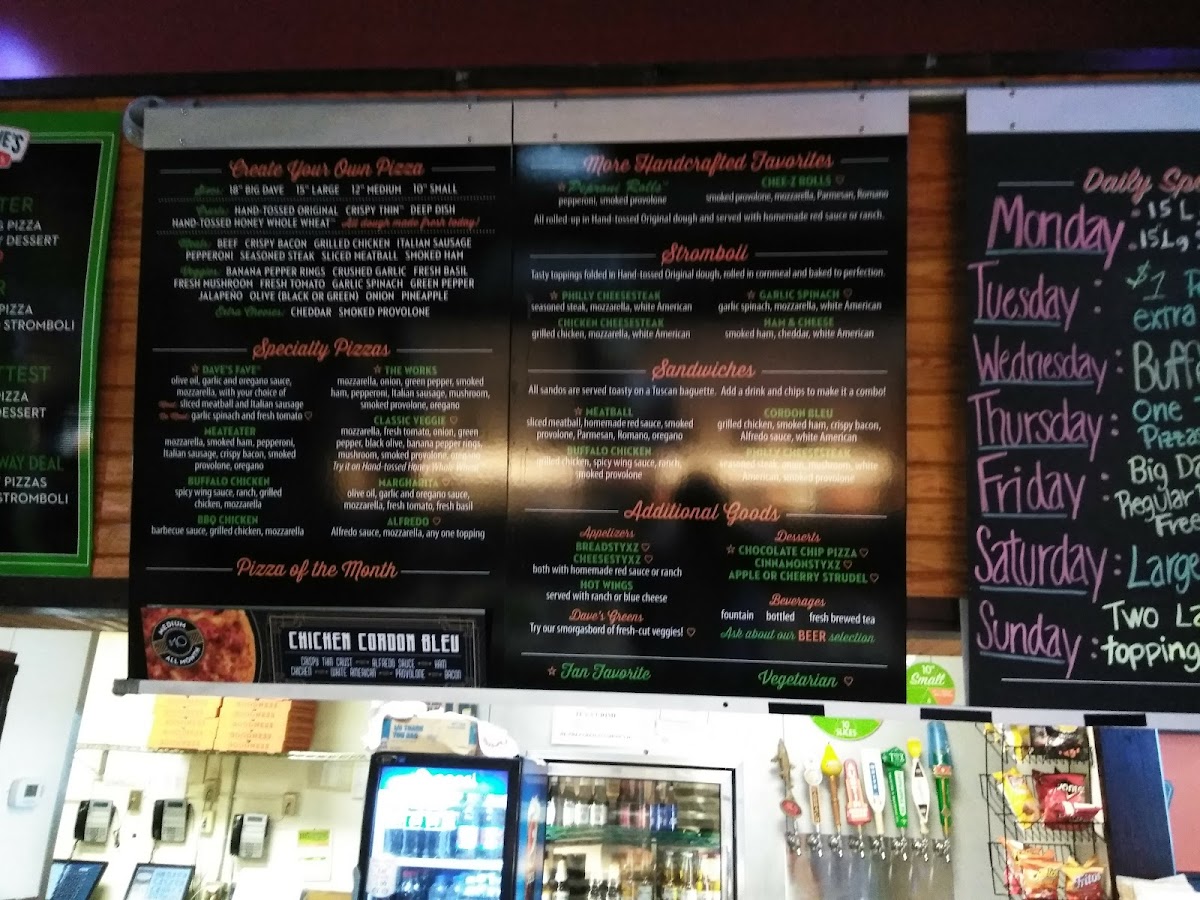 PIZZA
DESSERT
PIZZA
STROMBOLI
PIZZA
DESSERT
WAY DEAL
PIZZAS
STROMBOLI
Create Your Own Pizza
Sizes: 18" BIG DAVE 15" LARGE 12" MEDIUM 10" SMALL
Crusts: HAND-TOSSED ORIGINAL CRISPY THIN™ DEEP DISH
HAND-TOSSED HONEY WHOLE WHEAT™ All dough made fresh today!
Meats: BEEF CRISPY BACON GRILLED CHICKEN ITALIAN SAUSAGE
PEPPERONI SEASONED STEAK SLICED MEATBALL SMOKED HAM
Veggies: BANANA PEPPER RINGS CRUSHED GARLIC FRESH BASIL
FRESH MUSHROOM FRESH TOMATO GARLIC SPINACH GREEN PEPPER
JALAPEÑO OLIVE (BLACK OR GREEN) ONION PINEAPPLE
Extra Cheeses: CHEDDAR SMOKED PROVOLONE
Specialty Pizzas
☆ DAVE'S FAVE™
olive oil, garlic and oregano sauce,
mozzarella, with your choice of
Meat: sliced meatball and Italian sausage
No Meat: garlic spinach and fresh tomato ♡
MEATEATER
mozzarella, smoked ham, pepperoni,
Italian sausage, crispy bacon, smoked
provolone, oregano
BUFFALO CHICKEN
spicy wing sauce, ranch, grilled
chicken, mozzarella
BBQ CHICKEN
barbecue sauce, grilled chicken, mozzarella
☆ THE WORKS
mozzarella, onion, green pepper, smoked
ham, pepperoni, Italian sausage, mushroom,
smoked provolone, oregano
CLASSIC VEGGIE ♡
mozzarella, fresh tomato, onion, green
pepper, black olive, banana pepper rings,
mushroom, smoked provolone, oregano
Try it on Hand-tossed Honey Whole Wheat
MARGHARITA ♡
olive oil, garlic and oregano sauce,
mozzarella, fresh tomato, fresh basil
ALFREDO ♡
Alfredo sauce, mozzarella, any one topping
Pizza of the Month
MEDIUM
ALL MONTH
CHICKEN CORDON BLEU
CRISPY THIN CRUST ALFREDO SAUCE HAM
CHICKEN WHITE AMERICAN PROVOLONE BACON
More Handcrafted Favorites
☆ Peproni Rolls™
pepperoni, smoked provolone
CHEE-Z ROLLS ♡
smoked provolone, mozzarella, Parmesan, Romano
All rolled up in Hand-tossed Original dough and served with homemade red sauce or ranch.
Stromboli
Tasty toppings folded in Hand-tossed Original dough, rolled in cornmeal and baked to perfection.
☆ PHILLY CHEESESTEAK
seasoned steak, mozzarella, white American
☆ GARLIC SPINACH ♡
garlic spinach, mozzarella, white American
CHICKEN CHEESESTEAK
grilled chicken, mozzarella, white American
HAM & CHEESE
smoked ham, cheddar, white American
Sandwiches
All sandos are served toasty on a Tuscan baguette. Add a drink and chips to make it a combo!
☆ MEATBALL
sliced meatball, homemade red sauce, smoked
provolone, Parmesan, Romano, oregano
CORDON BLEU
grilled chicken, smoked ham, crispy bacon,
Alfredo sauce, white American
BUFFALO CHICKEN
grilled chicken, spicy wing sauce, ranch,
smoked provolone
PHILLY CHEESESTEAK
seasoned steak, onion, mushroom, white
American, smoked provolone
Additional Goods
Appetizers
BREADSTYXZ ♡
CHEESESTYXZ ♡
both with homemade red sauce or ranch
HOT WINGS
served with ranch or blue cheese
Dave's Greens
Try our smorgasbord of fresh-cut veggies! ♡
Desserts
☆ CHOCOLATE CHIP PIZZA ♡
CINNAMONSTYXZ ♡
APPLE OR CHERRY STRUDEL ♡
Beverages
fountain bottled fresh brewed tea
Ask about our BEER selection
☆ Fan Favorite
Vegetarian ♡
Daily Sp
Monday - 15 L
- 15 Lg
Tuesday : $1
extra
Wednesday : Buff
Thursday : One
Pizza
Friday : Big Da
Regular
Free
Saturday : Large
Sunday : Two La
topping
10"
Small
10
SLICES
Fritos